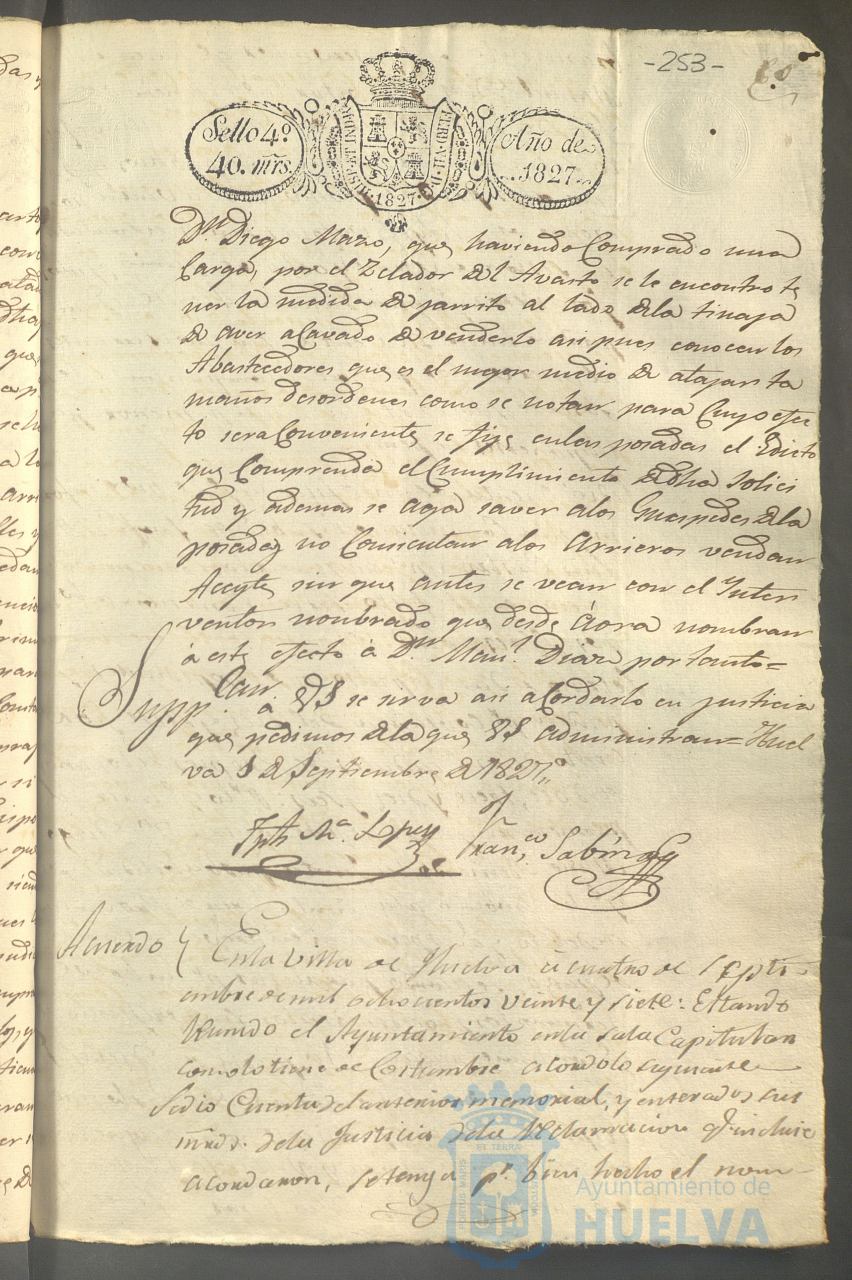 -253-
Sello 4.º
40. mrs.
HISP. ET IND. REX
FERD. VII. D. G.
1827
Año de
1827
Dn. Diego Mazo, que haviendo Comprado una
Carga, por el Zelador del Avasto se le encontro te
ner la medida de jarrito al lado dela tinaja
de aver acavado de venderlo asi pues conocen los
Abastecedores que es el mejor medio de atajar ta
maños desordenes como se notan para Cuyo efec
to sera Conveniente se fije enlas posadas el Edicto
que Comprenda el Cumplimiento de dha solici
tud y ademas se aga saver alos Guespedes dela
posadas no Consientan alos Arrieros vendan
Aceyte sin que antes se vean con el Inter
ventor nombrado que desde áora nombran
á este efecto á Dn. Manl. Diaz por tanto=
Suppcan. a VS se sirva asi acordarlo en justicia
que pedimos dela que VS administran= Huel
va 1 de Septiembre de 1827,,
Jph Ma. Lopez Franco. Sabino
Acuerdo
Enla Villa de Huelva á cuatro de Septi-
embre de mil ochocientos veinte y siete: Estando
Reunido el Ayuntamiento enla sala Capitular
como lo tiene de Costumbre acordo lo siguiente
Sedio Cuenta del anterior memorial, y enterados sus
mrds. dela Justicia dela Reclamacion q. incluie
acordaron, setenga pr. bien hecho el nom-
EL TERRA
Ayuntamiento de
HUELVA